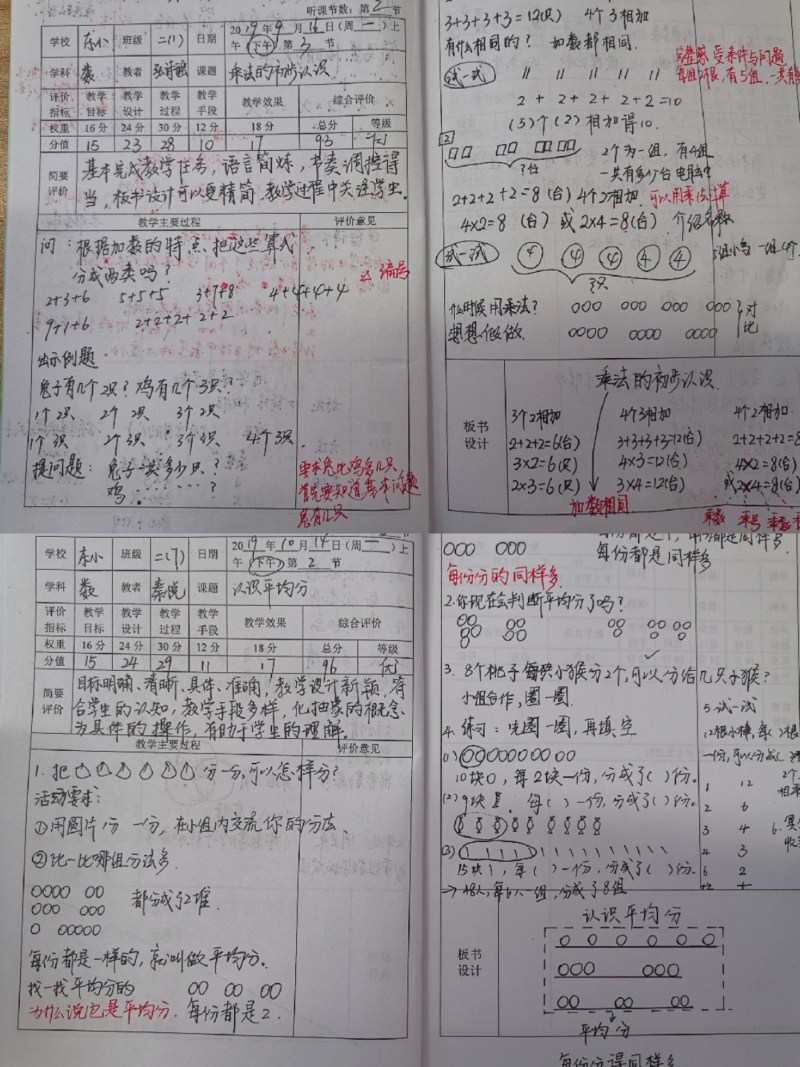 听课节数：第2节
学校 东小 班级 二(1) 日期 2019年9月16日(周一)上午(下午)第3节
学科 数 教者 课题 乘法的初步认识
评价指标 教学目标 教学设计 教学过程 教学手段 教学效果 综合评价
权重 16分 24分 30分 12分 18分 总分 等级
分值 15 23 28 10 17 93 优
简要评价 基本完成教学任务，语言简炼，节奏调控得
当，板书设计可以更精简，教学过程中关注学生。
教学主要过程 评价意见
问：根据加数的特点，把这些算式
分成两类吗？ 编号
2+3+6 5+5+5 3+7+8 4+4+4+4
9+1+6 2+2+2+2+2
出示例题
兔子有几个2只？鸡有几个3只？
1个2只 2个2只 3个2只
1个3只 2个3只 3个3只 4个3只
提问题：兔子一共多少只？
鸡：……？
首先要知道基本问题
兔有几只
3+3+3+3=12(只) 4个3相加
有什么相同的？ 加数都相同.
试一试
2+2+2+2+2=10
(5)个(2)相加得10.
2
2个为一组，有4组
?台
一共有多少台电脑
2+2+2+2=8(台) 4个2相加. 可以用乘法计算
4×2=8(台) 或 2×4=8(台) 介绍名称
试一试 4 4 4 4 4
?只
什么时候用乘法？
对比
想想做做
板书设计
乘法的初步认识
3个2相加 4个3相加 4个2相加
2+2+2=6(台) 3+3+3+3=12(台) 2+2+2+2=8
3×2=6(只) 4×3=12(台) 4×2=8(台)
2×3=6(只) 3×4=12(台) 或2×4=8(台)
加数相同 乘数 乘号 乘数
学校 东小 班级 二(7) 日期 2019年10月14日(周一)上午(下午)第2节
学科 数 教者 秦悦 课题 认识平均分
评价指标 教学目标 教学设计 教学过程 教学手段 教学效果 综合评价
权重 16分 24分 30分 12分 18分 总分 等级
分值 15 24 29 11 17 96 优
简要评价 目标明确、清晰、具体、准确，教学设计新颖，符
合学生的认知，教学手段多样，化抽象的概念
为具体的操作，有助于学生的理解.
教学主要过程 评价意见
1.把 分一分，可以怎样分？
活动要求：
①用图片分一分，在小组内交流你的分法.
②比一比哪组分法多.
都分成了2堆.
每份都是一样的，就叫做平均分.
找一找平均分的
为什么说它是平均分. 每份都是2.
每份都是同样多
每份分的同样多.
2.你现在会判断平均分了吗？
3. 8个桃子每只小猴分2个，可以分给几只子猴？
小组合作，圈一圈.
4.练习：先圈一圈，再填空
(1)
10块，每2块一份，分成了( )份.
(2)9块，每( )一份，分成了( )份.
(3)
15块，每( )一份，分成了( )份.
→48人，每6人一组，分成了8组
5.试一试
12根小棒，每( )根
一份，可以分成( )
1 12
2 6
3 4
4 3
6 2
板书设计
认识平均分
平均分
每份分得同样多